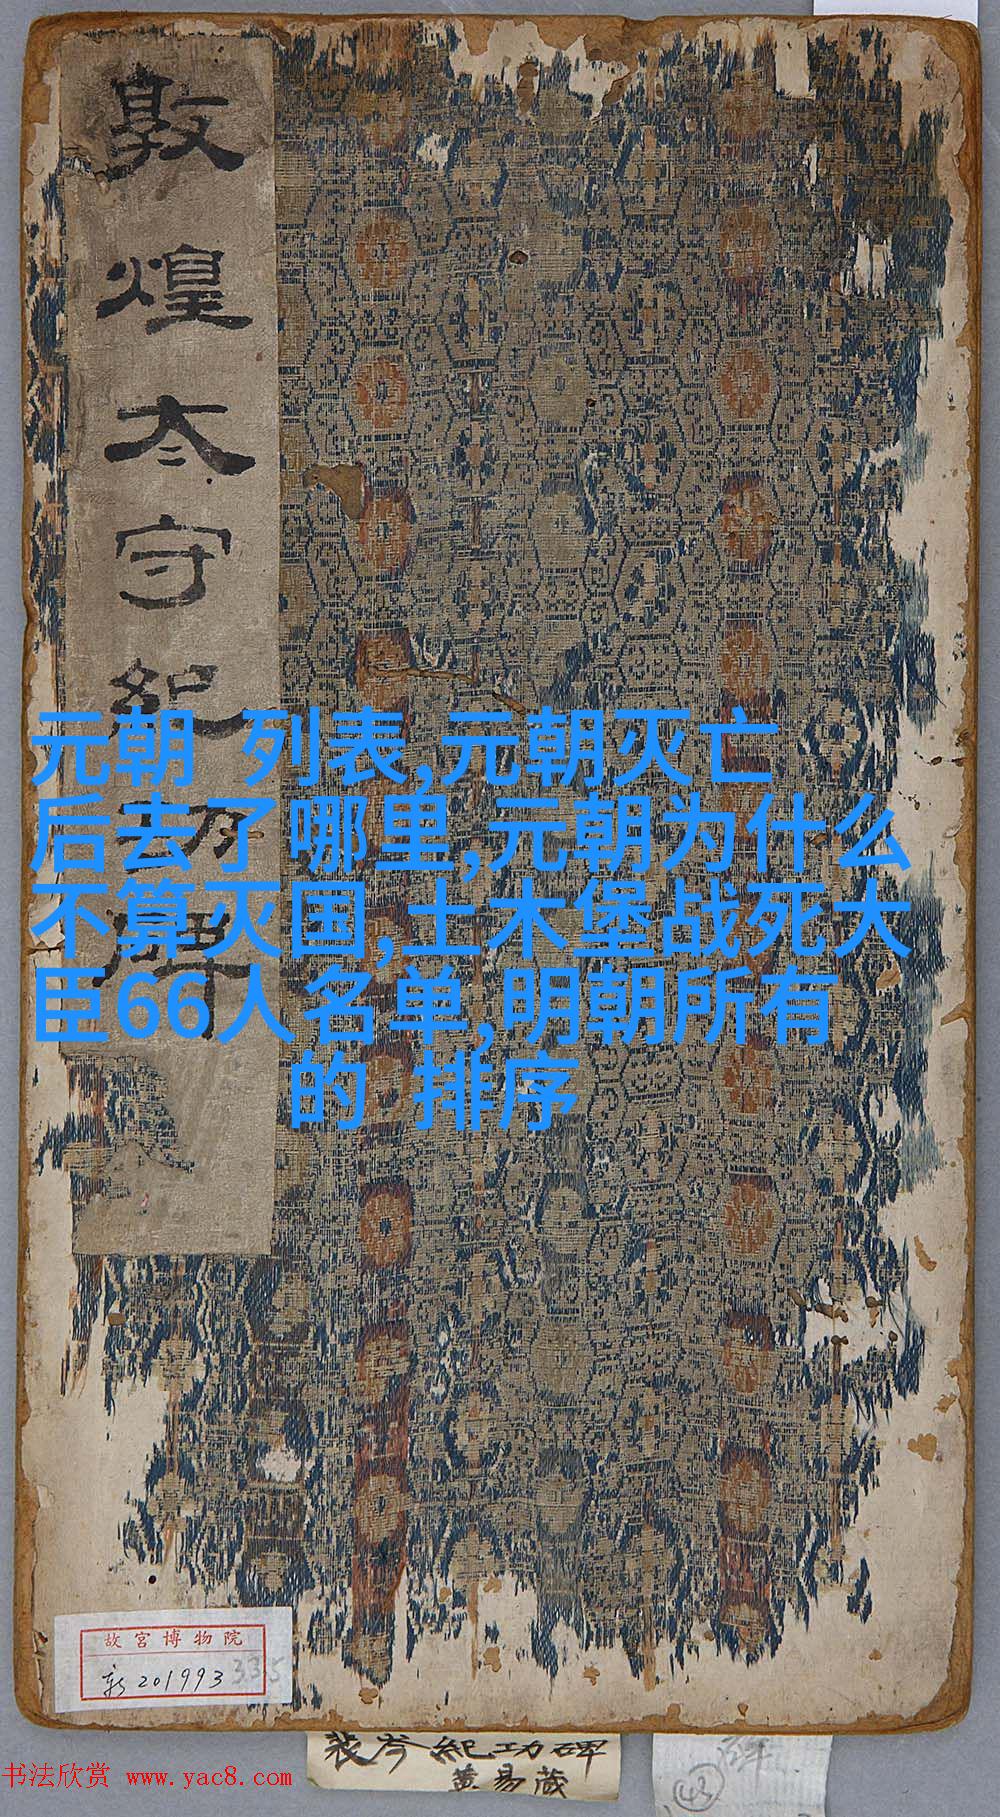 敦煌太守紀功碑
元朝 列表,元朝灭亡
后去了哪里,元朝为什么
不算灭国,土木堡战死大
臣66人名单,明朝所有
的 排序
故宫博物院
新201993
335
裴岑紀功碑
黄易藏
书法欣赏 www.yac8.com